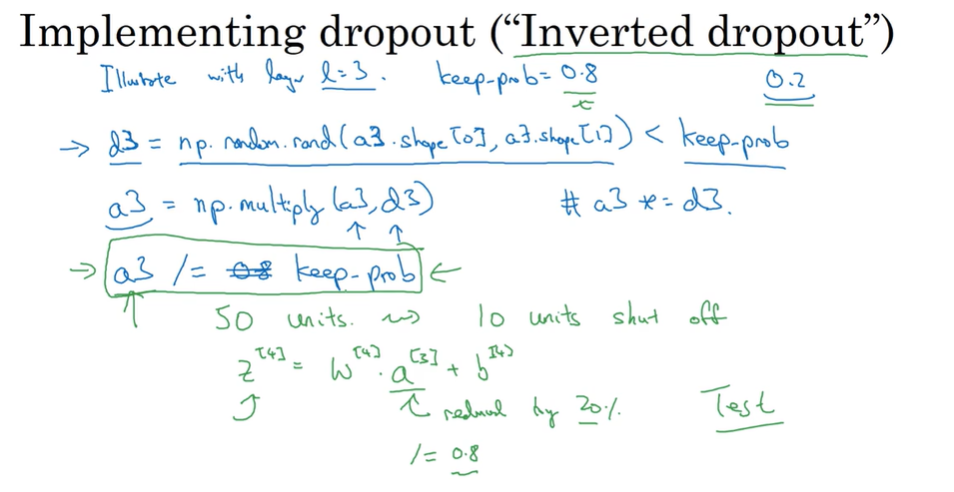 Implementing dropout ("Inverted dropout")
Illustrate with layer l=3. keep-prob= 0.8 0.2
→ d3 = np.random.rand(a3.shape[0], a3.shape[1]) < keep-prob
a3 = np.multiply(a3, d3) # a3 *= d3.
→ a3 /= 0.8 keep-prob ←
50 units. ⇝ 10 units shut off
z[4] = W[4] · a[3] + b[4]
reduced by 20% Test
/= 0.8